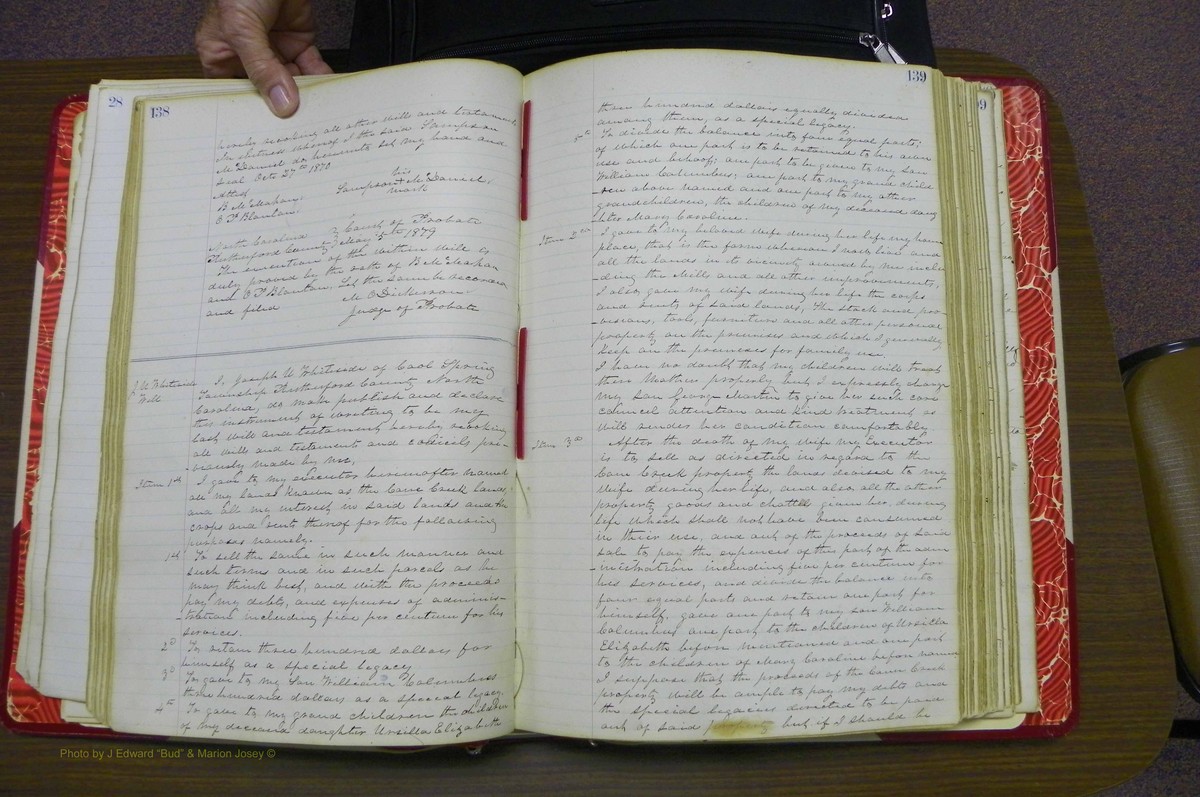 28
138
hereby revoking all other wills and testaments
In witness whereof I the said Sampson
McDaniel do hereunto set my hand and
Seal Octr 27th 1870
attest
his
B McMahan,
Sampson + McDaniel,
mark
C P Blanton.
North Carolina } Court of Probate
Rutherford County } May 5th 1879
The execution of the within will is
duly proved by the oath of B McMahan
and C P Blanton, Let the same be recorded
and filed
M O Dickerson
Judge of Probate
J W Whitesides
Will
I, Joseph W Whitesides of Cool Spring
Township Rutherford County North
Carolina, do make publish and declare
this instrument of writing to be my
last will and testament hereby revoking
all wills and testaments and codicils pre-
viously made by me,
Item 1st
I give to my executor hereinafter named
all my lands known as the Cane Creek lands,
and all my interest in said lands and the
crops and rents thereof for the following
purposes namely.
1st To sell the same in such manner and
such terms and in such parcels as he
may think best, and with the proceeds
pay my debts, and expenses of adminis-
tration including five per centum for his
services.
2d To retain three hundred dollars for
himself as a special legacy
3d To give to my Son William Columbus
three hundred dollars as a special legacy.
4th To give to my grand children the children
of my deceased daughter Ursilla Elizabeth
139
99
three hundred dollars equally divided
among them, as a special legacy.
5th To divide the balance into four equal parts;
of which one part is to be retained to his own
use and behoof; one part to be given to my son
William Columbus; one part to my grand child
-ren above named and one part to my other
grandchildren, the children of my deceased daug
hter Mary Caroline.
Item 2nd
I give to my beloved wife during her life my home
place, that is the farm whereon I now live and
all the lands in its vicinity owned by me inclu
ding the Mills and all other improvements.
I also give my wife during her life the crops
and rents of said lands, The stock and pro
-visions, tools, furniture and all other personal
property on the premises and which I generally
keep on the premises for family use.
I have no doubt that my children will treat
their Mother properly but I expressly charge
my son George Martin to give her such care
council attention and kind treatment as
will render her condition comfortably
Item 3rd
After the death of my wife my Executor
is to sell as directed in regard to the
Cane Creek property the lands devised to my
wife during her life, and also all the other
property goods and chattels given her during
life which shall not have been consumed
in their use, and out of the proceeds of said
sale to pay the expenses of this part of the adm
-inistration including five per centum for
his services, and divide the balance into
four equal parts and retain one part for
himself, give one part to my son William
Columbus one part to the children of Ursilla
Elizabeth before mentioned and one part
to the children of Mary Caroline before named
I suppose that the proceeds of the Cane Creek
property will be ample to pay my debts and
the special legacies directed to be paid
out of said but if I should be
Photo by J Edward "Bud" & Marion Josey ©